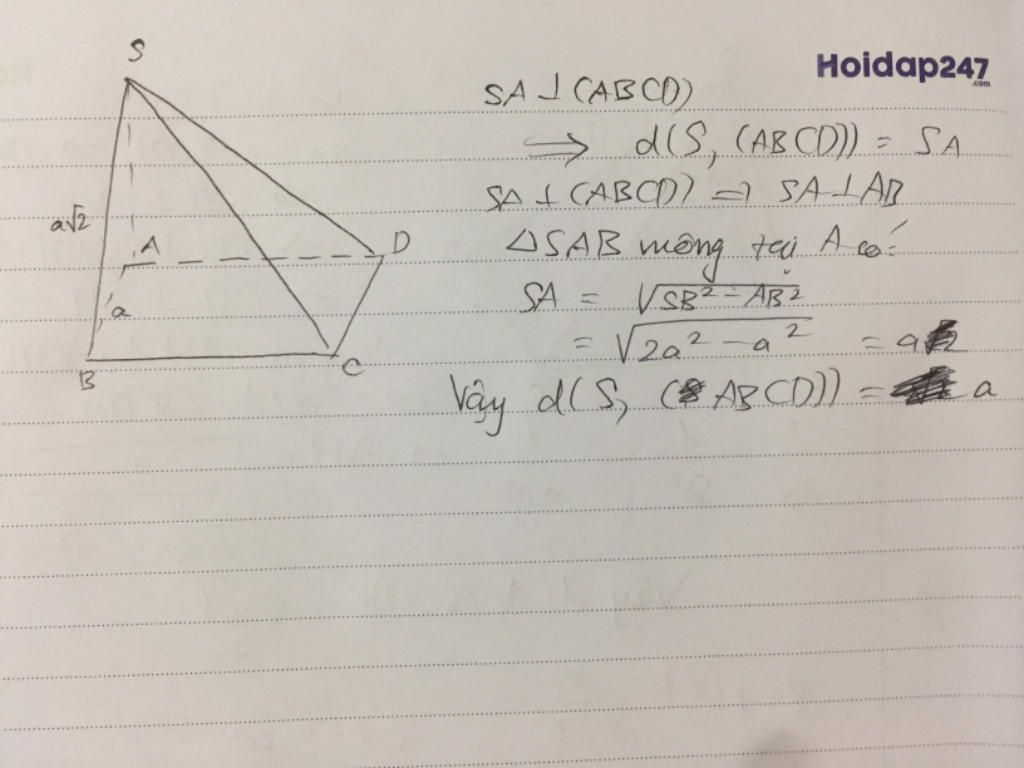 S
Hoidap247
.com
SA ⊥ (ABCD)
⟹ d(S, (ABCD)) = SA
SA ⊥ (ABCD) ⟹ SA ⊥ AB
a√2
A
D
ΔSAB vuông tại A có:
a
SA = √SB² - AB²
= √2a² - a² = a
B
C
Vậy d(S, (ABCD)) = a